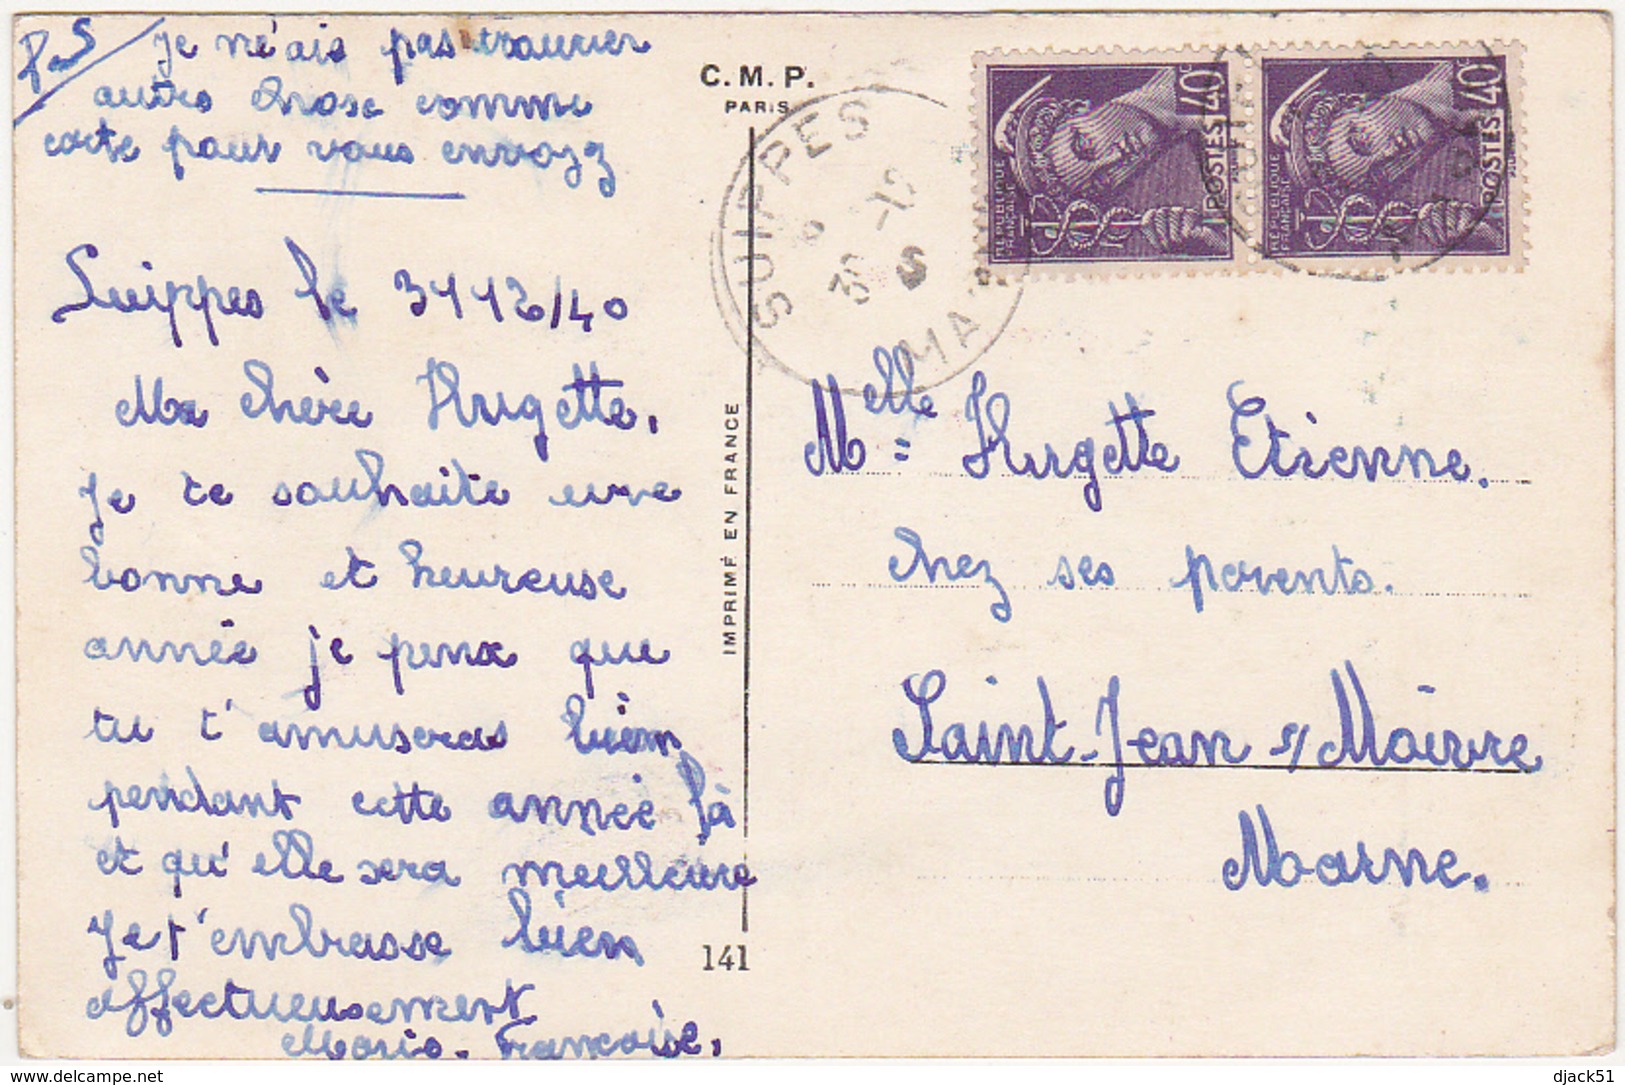 PS Je n'ais pas trouver
autre chose comme
carte pour vous envoyz
Suippes le 31 12/40
Ma chère Hugette,
je te souhaite une
bonne et heureuse
année je penx que
tu t'amuseras bien
pendant cette année là
et qu'elle sera meilleure
Je t'embrasse bien
affectueusement
Marie-Françoise,
C.M.P.
PARIS
IMPRIMÉ EN FRANCE
141
SUIPPES
MA
30 -12
RÉPUBLIQUE
FRANÇAISE
POSTES 40c
RÉPUBLIQUE
FRANÇAISE
POSTES 40c
Melle Hugette Etienne.
chez ses parents.
Saint-Jean s/ Moivre
Marne.
https://www.delcampe.net
djack51